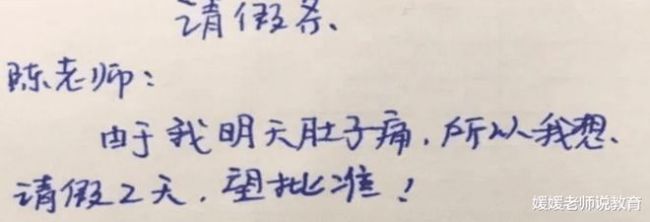 请假条.
陈老师:
由于我明天肚子痛,所以我想.
请假2天,望批准!
媛媛老师说教育